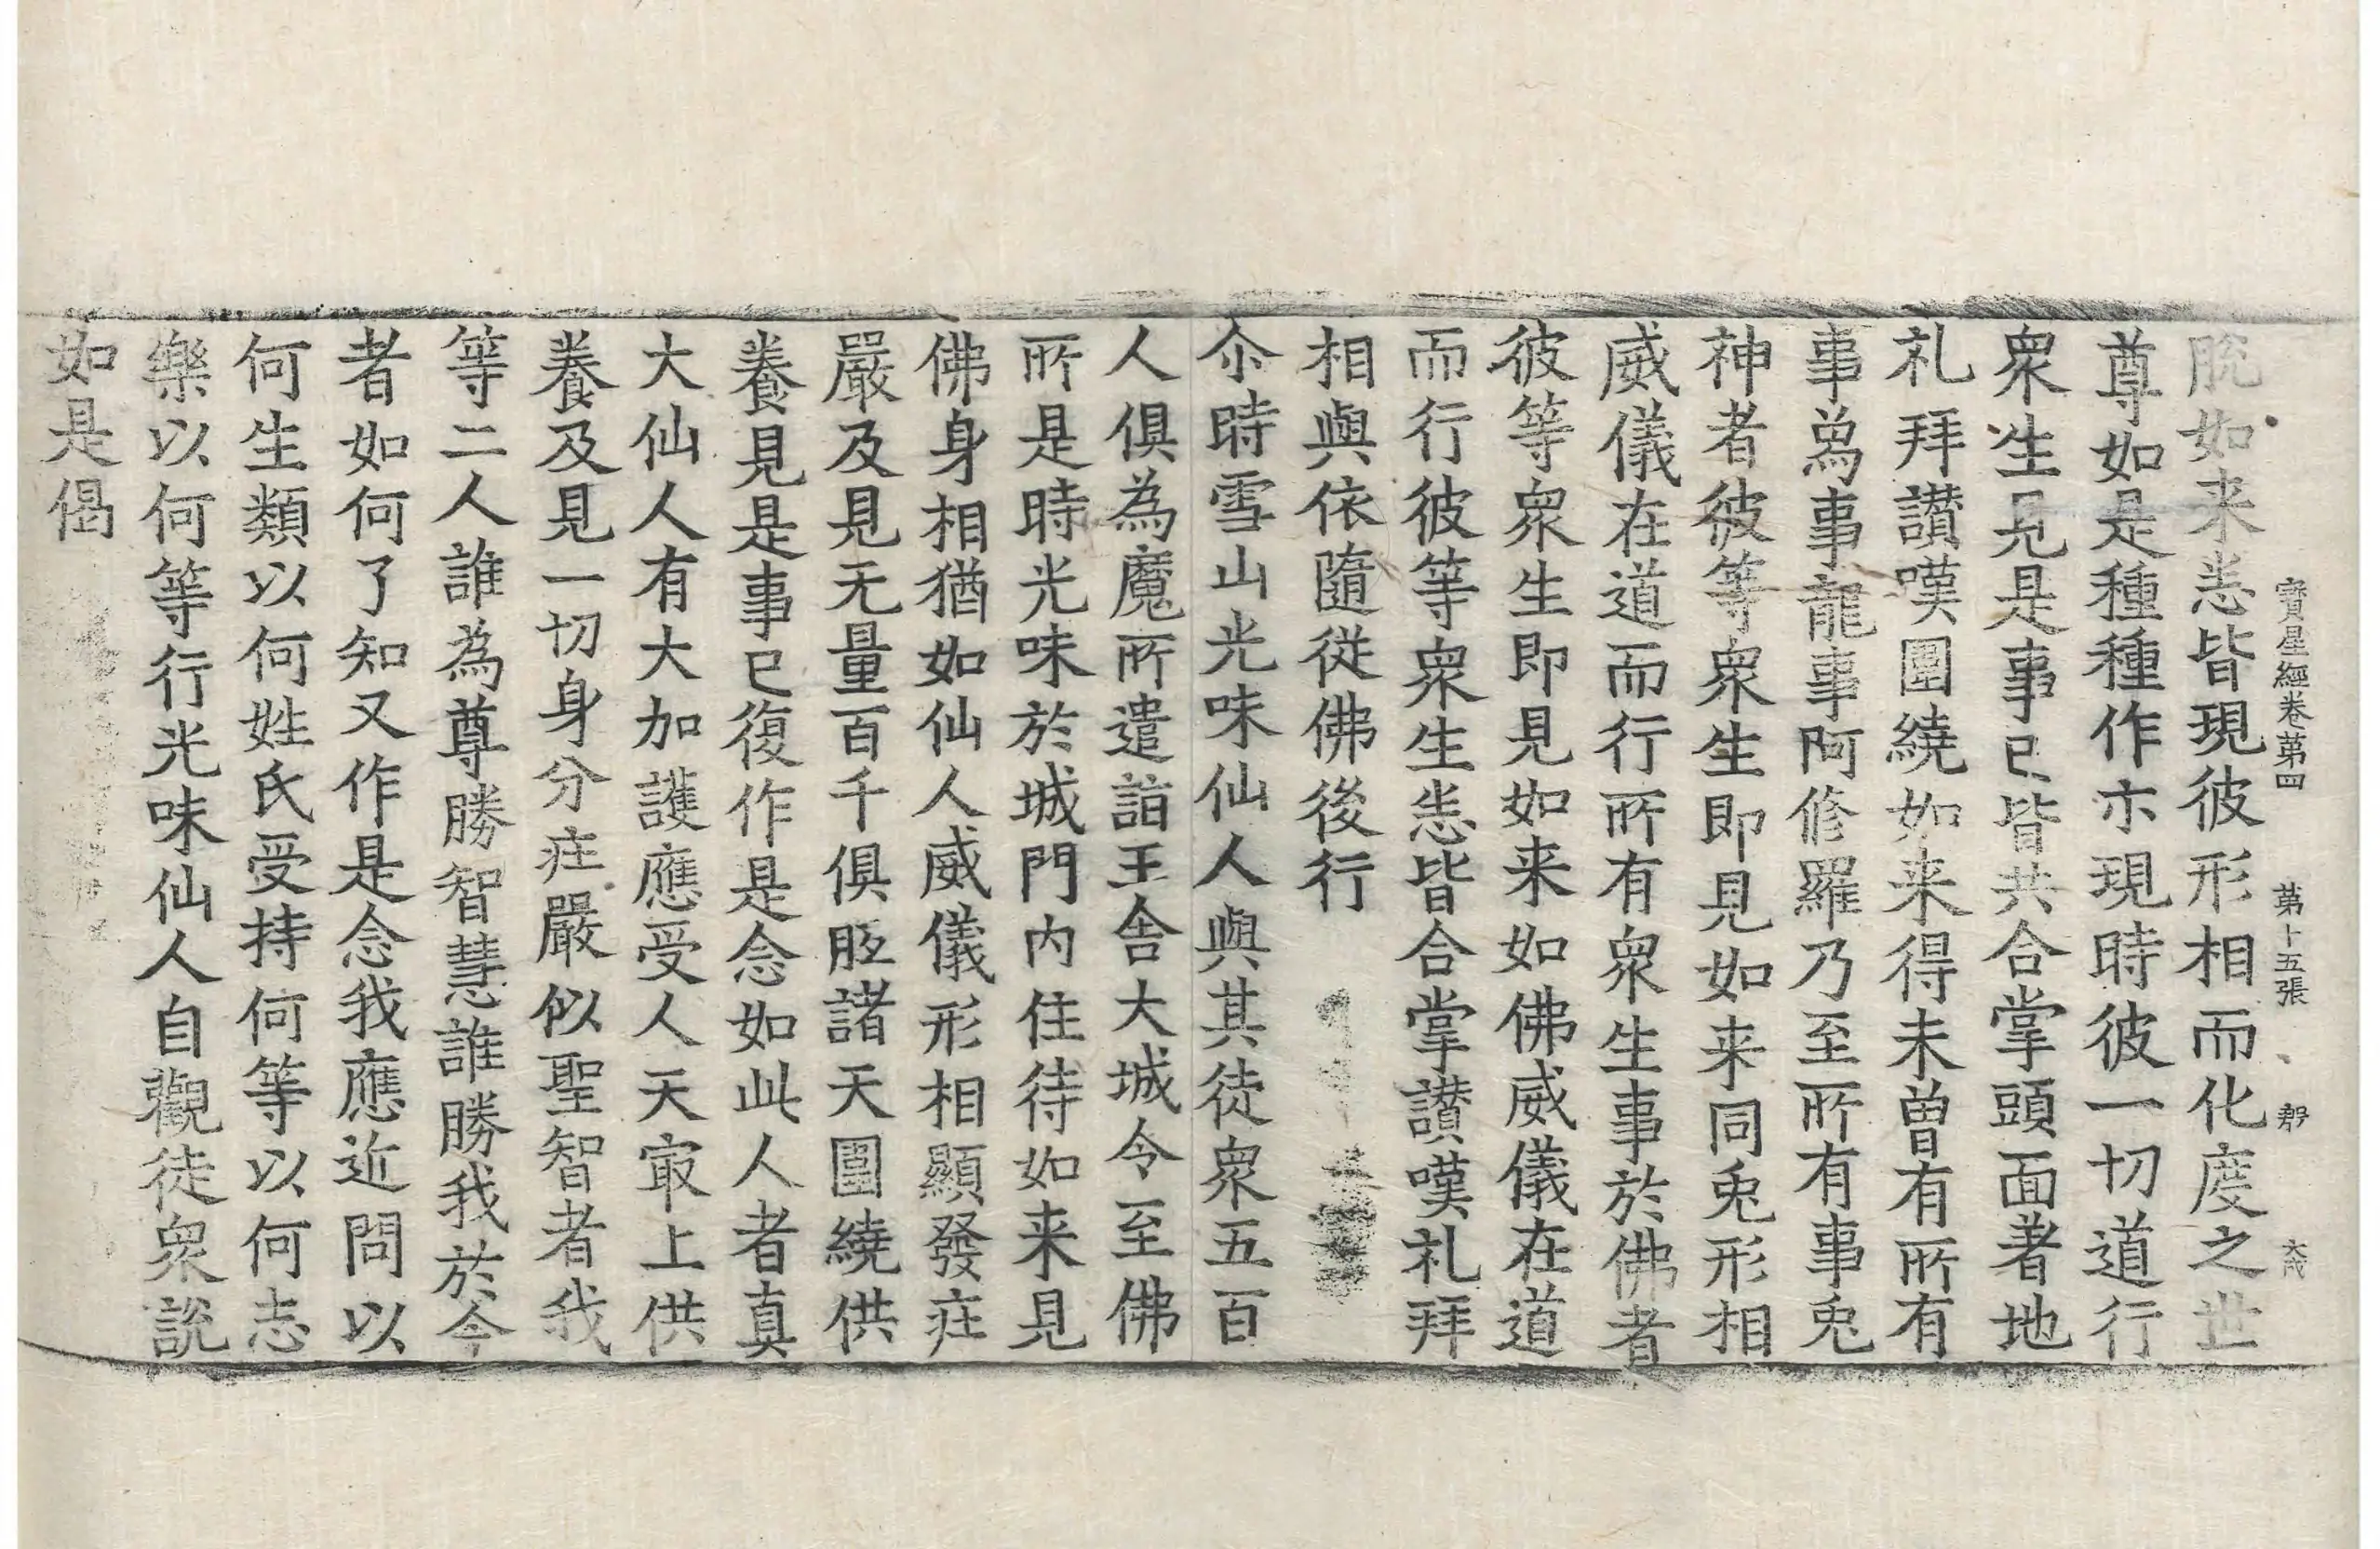 寶星經卷第四　第十五張　䣛　大成
脫如来恙皆現彼形相而化度之世
尊如是種種作亦現時彼一切道行
衆生見是事已皆共合掌頭面著地
礼拜讃嘆圍繞如来得未曽有所有
事為事龍事阿修羅乃至所有事兎
神者彼等衆生即見如来同兎形相
威儀在道而行所有衆生事於佛者
彼等衆生即見如来如佛威儀在道
而行彼等衆生恙皆合掌讃嘆礼拜
相與依隨從佛後行
尒時雪山光味仙人與其徒衆五百
人俱為魔所遣詣王舎大城令至佛
所是時光味於城門内住待如来見
佛身相猶如仙人威儀形相顯發疘
嚴及見无量百千俱胝諸天圍繞供
養見是事已復作是念如此人者真
大仙人有大加護應受人天㝡上供
養及見一切身分疘嚴似聖智者我
等二人誰為尊勝智慧誰勝我於今
者如何了知又作是念我應近問以
何生類以何姓氏受持何等以何志
樂以何等行光味仙人自觀徒衆說
如是偈